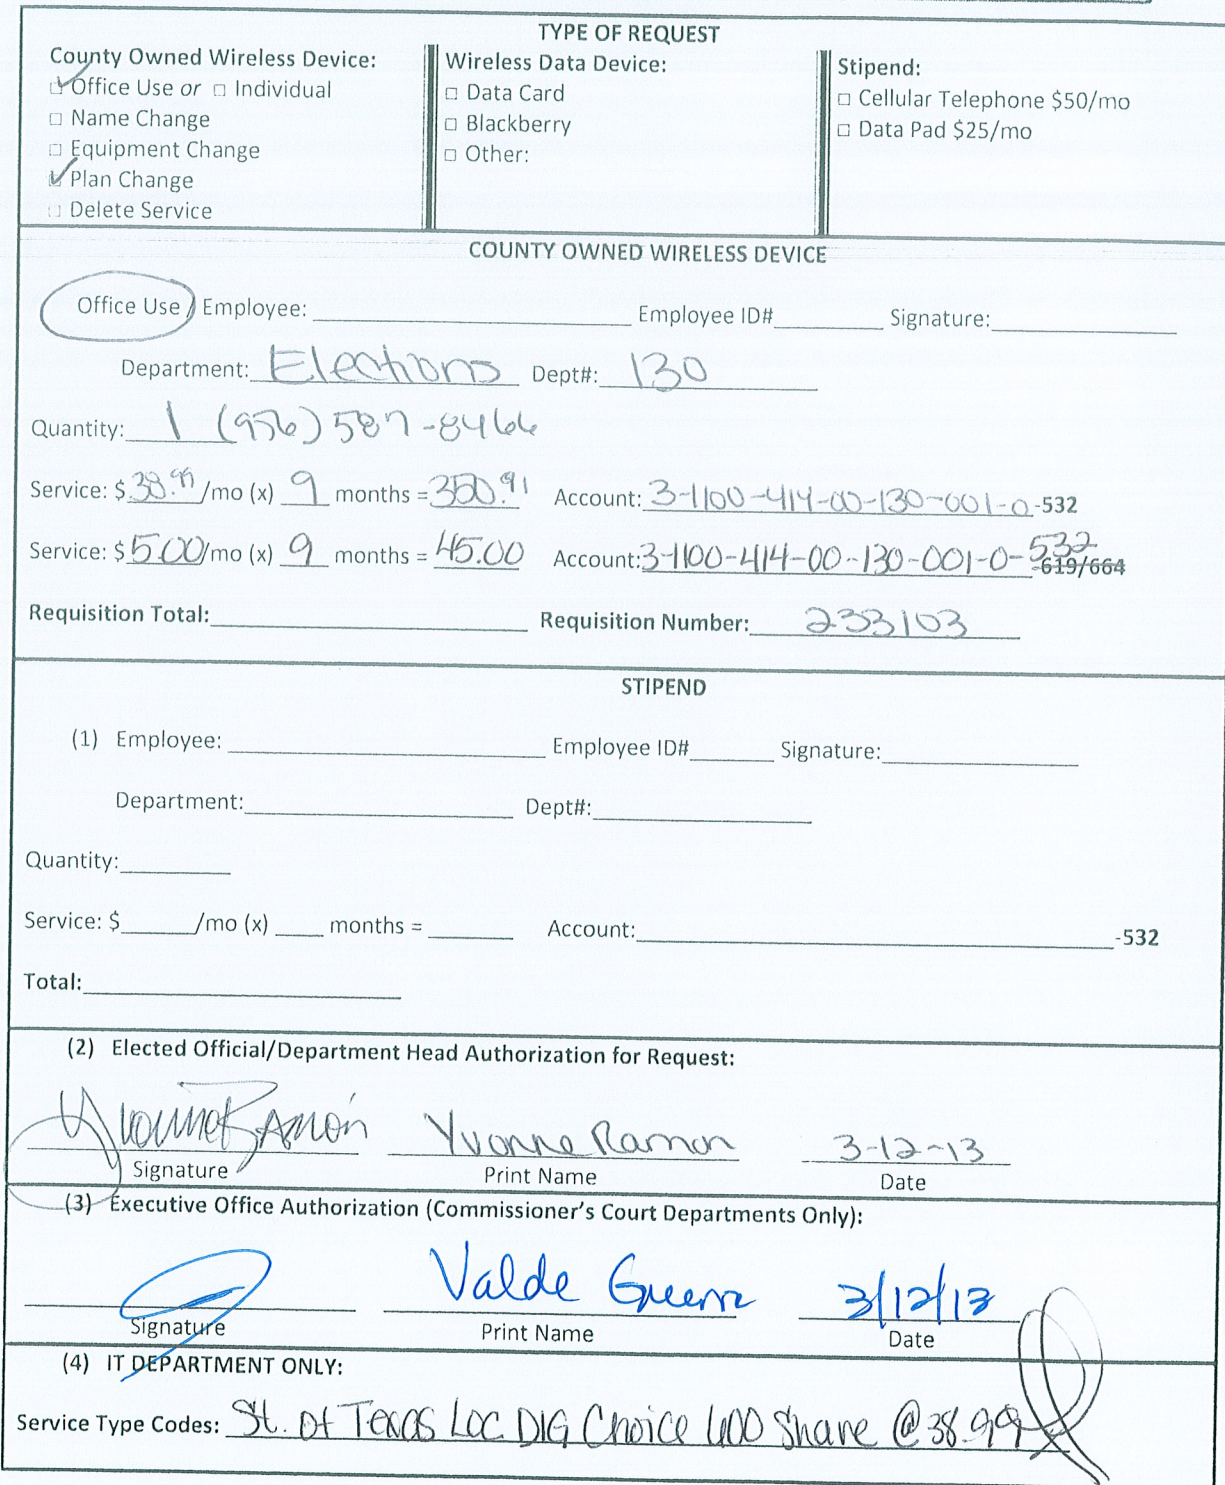 TYPE OF REQUEST
County Owned Wireless Device:
Office Use or □ Individual
□ Name Change
□ Equipment Change
Plan Change
□ Delete Service
Wireless Data Device:
□ Data Card
□ Blackberry
□ Other:
Stipend:
□ Cellular Telephone $50/mo
□ Data Pad $25/mo
COUNTY OWNED WIRELESS DEVICE
Office Use / Employee: Employee ID# Signature:
Department: Elections Dept#: 130
Quantity: 1 (956) 587-8466
Service: $ 38.99 /mo (x) 9 months = 350.91 Account: 3-1100-414-00-130-001-0-532
Service: $ 5.00/mo (x) 9 months = 45.00 Account: 3-1100-414-00-130-001-0-532
-619/664
Requisition Total: Requisition Number: 233103
STIPEND
(1) Employee: Employee ID# Signature:
Department: Dept#:
Quantity:
Service: $ /mo (x) months = Account: -532
Total:
(2) Elected Official/Department Head Authorization for Request:
Yvonne Ramón Yvonne Ramon 3-12-13
Signature Print Name Date
(3) Executive Office Authorization (Commissioner's Court Departments Only):
Valde 3/12/13
Signature Print Name Date
(4) IT DEPARTMENT ONLY:
Service Type Codes: St. of Texas Loc DIG Choice 600 Share @ 38.99